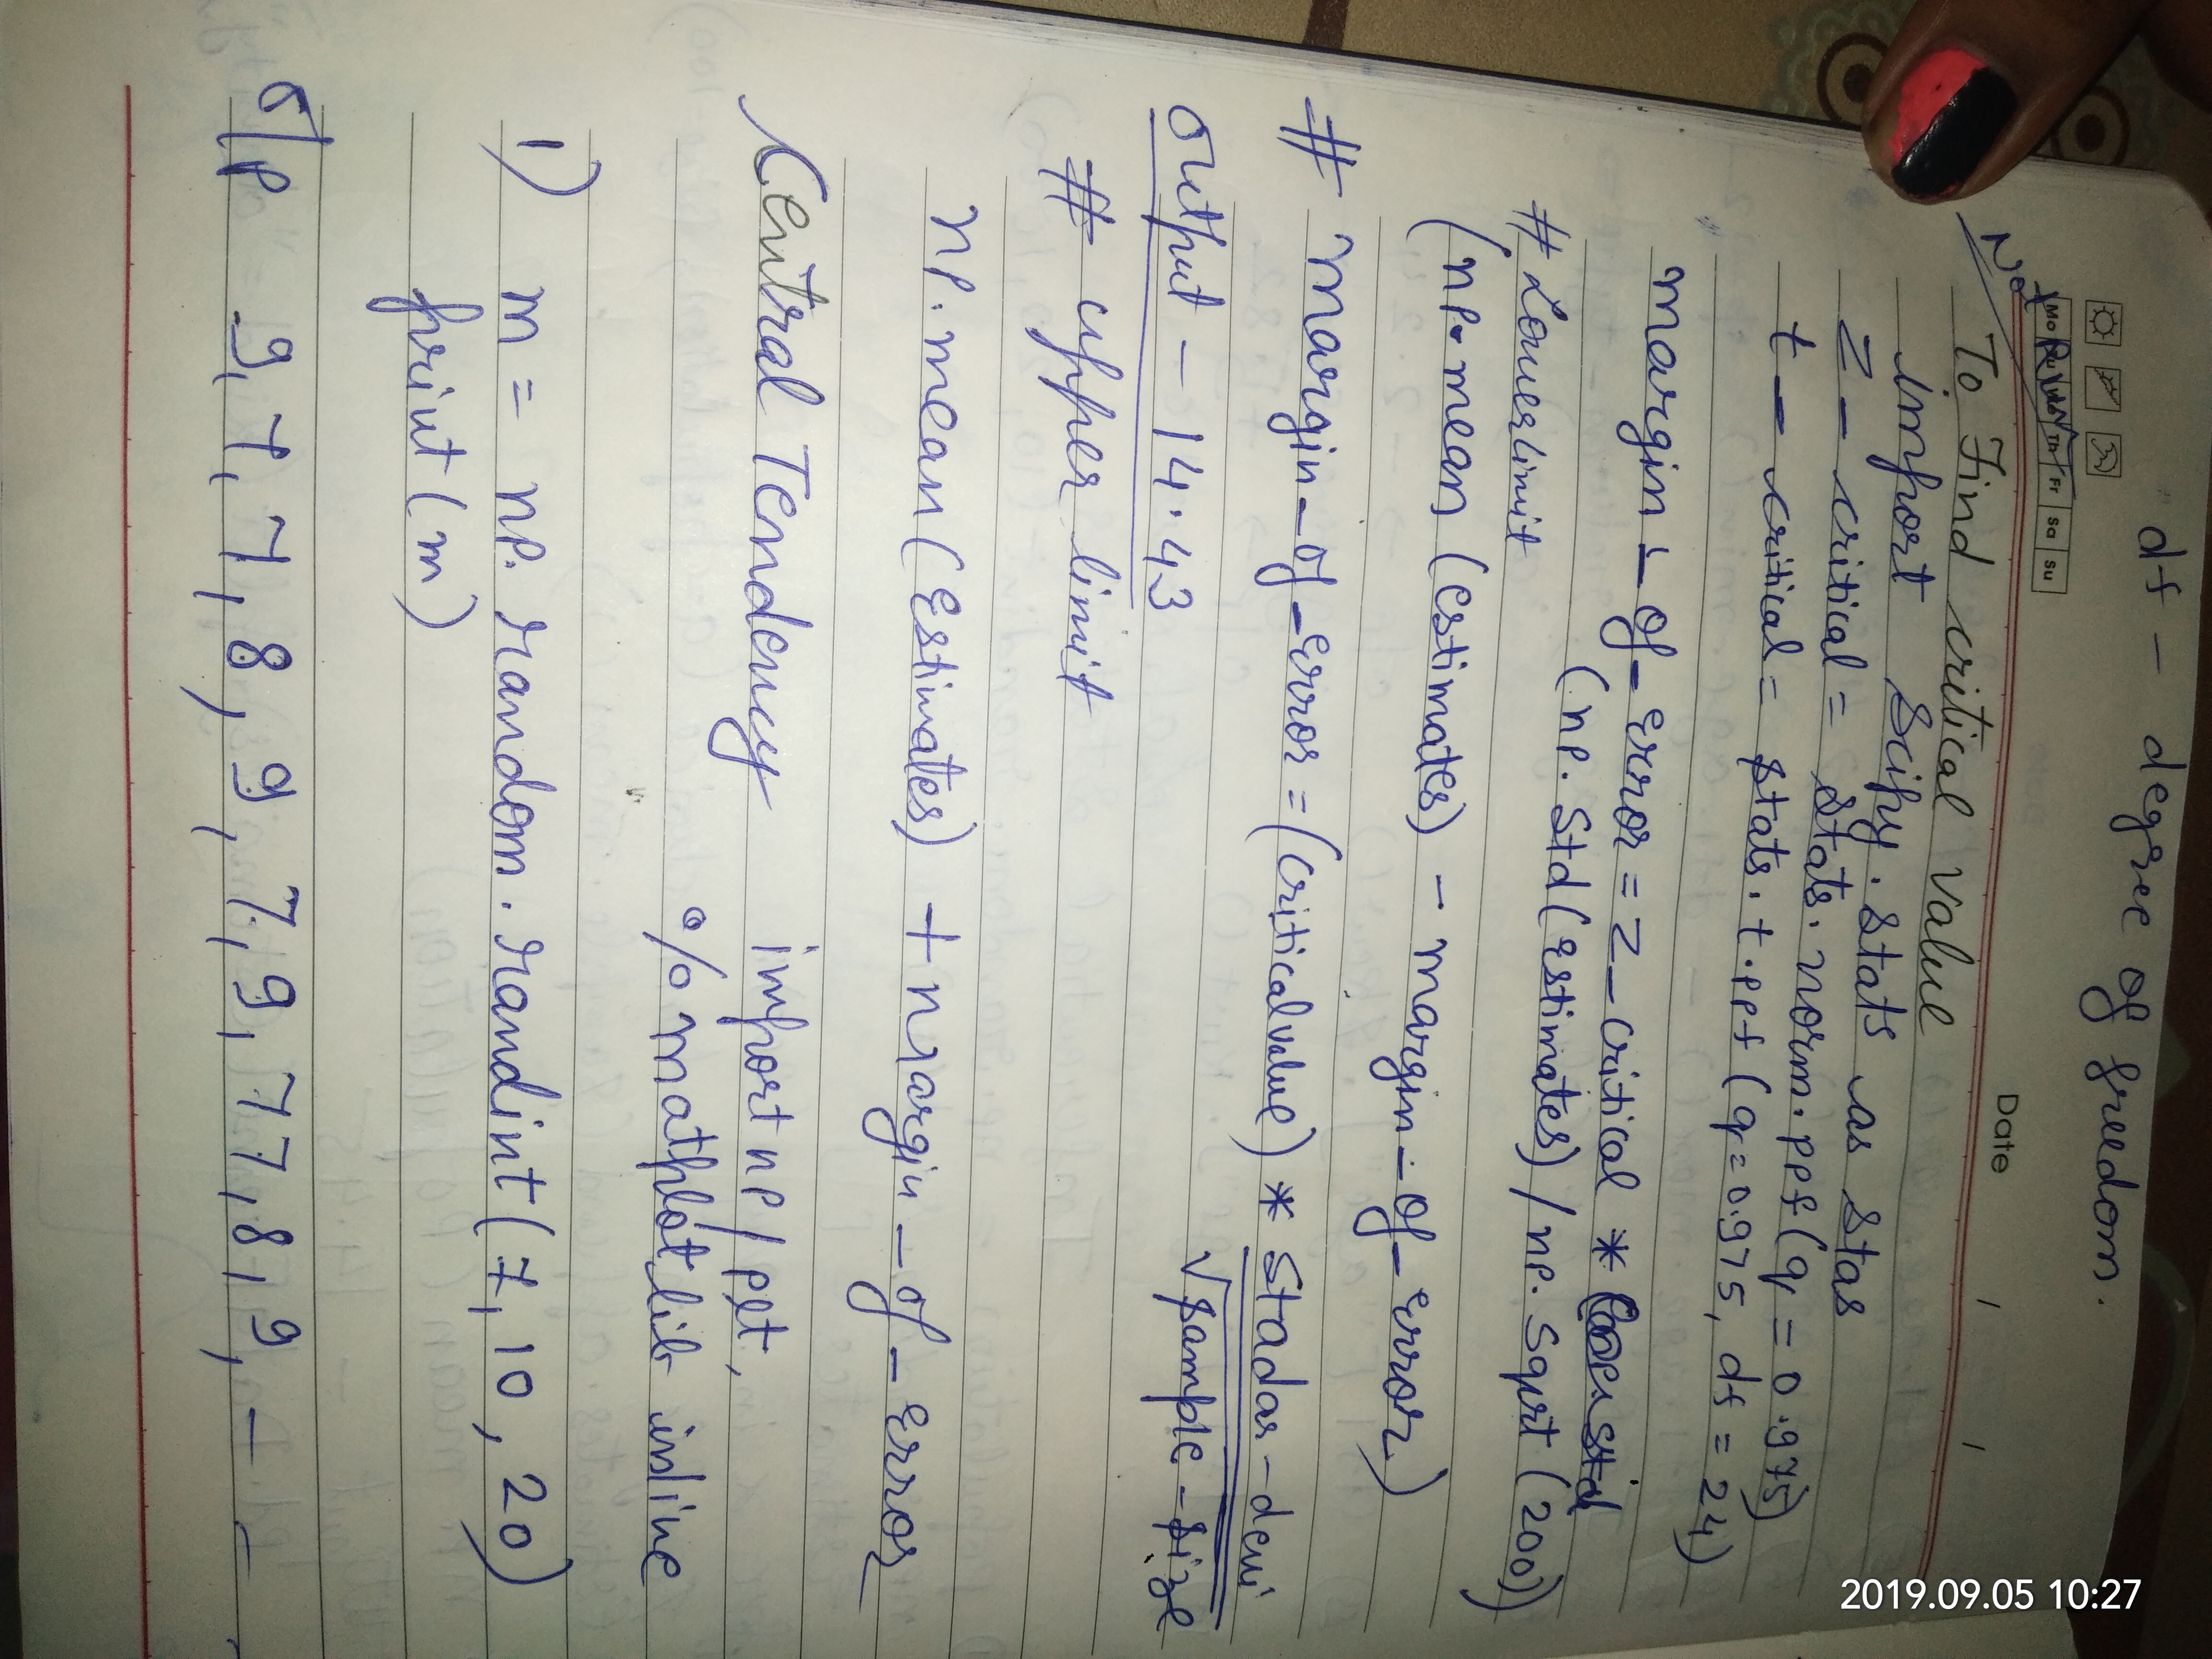 df - degree of freedom.
Mo Tu We Th Fr Sa Su
Date / /
To Find critical value
import scipy.stats as stas
z_critical = stats.norm.ppf(q = 0.975)
t_critical = stats.t.ppf(q = 0.975, df = 24)
margin_of_error = z_critical *
(np.std(estimates)/np.sqrt(200))
# Lowerlimit
(np.mean (estimates) - margin_of_error)
# margin_of_error = (criticalvalue) * stadar-devi
√sample-size
output - 14.43
# upper limit
np.mean(estimates) + margin_of_error
Central Tendency import np/plt,
% mathplotlib inline
1) m = np.random.randint(7, 10, 20)
print(m)
o/p 9,7,7,8,9,7,9,77,8,9, - -
2019.09.05 10:27